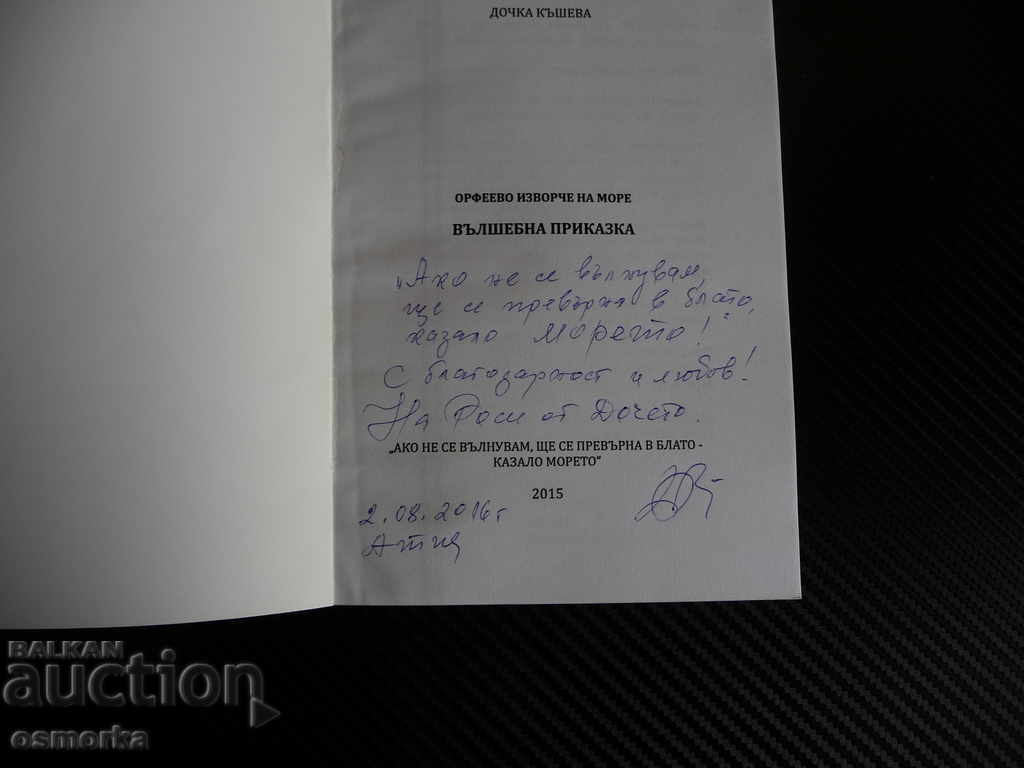 ДОЧКА КЪШЕВА
ОРФЕЕВО ИЗВОРЧЕ НА МОРЕ
ВЪЛШЕБНА ПРИКАЗКА
„Ако не се вълнувам,
ще се превърна в блато,
казало Морето!"
С благодарност и любов!
На Роси от Дочето.
„АКО НЕ СЕ ВЪЛНУВАМ, ЩЕ СЕ ПРЕВЪРНА В БЛАТО -
КАЗАЛО МОРЕТО"
2015
2.08.2016г
Атия
BALKAN
auction
osmorka